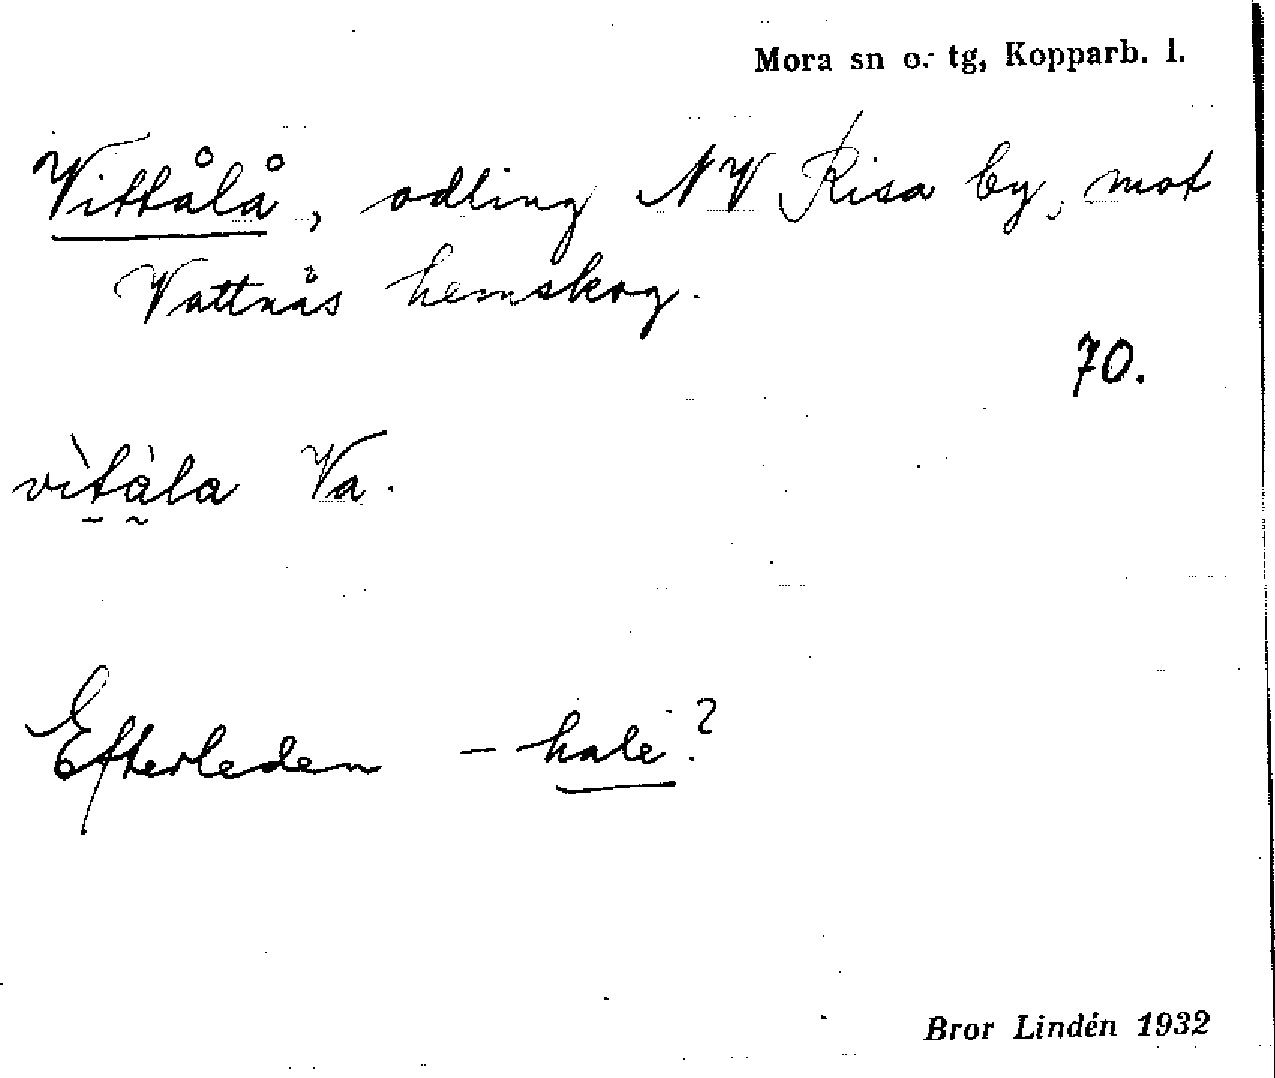 Mora sn o. tg, Kopparb. l.
Vittålå, odling NV Risa by, mot
Vattnäs hemskog.
70.
vìt̠àla Va.
Efterleden - hale?
Bror Lindén 1932